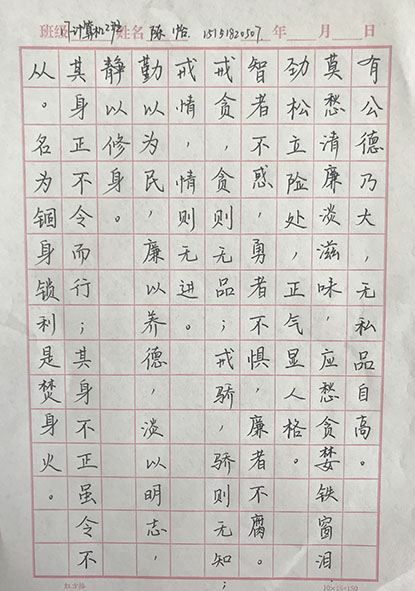 班级 7计算机2班 姓名 陈怡 15151820507 年 月 日
有公德乃大，无私品自高。
莫愁清廉淡滋味，应愁贪婪铁窗泪
劲松立险处，正气显人格。
智者不惑，勇者不惧，廉者不腐。
戒贪，贪则无品；戒骄，骄则无知；
戒情，情则无进。
勤以为民，廉以养德，淡以明志，
静以修身。
其身正不令而行；其身不正虽令不
从。名为锢身锁利是焚身火。
10×15=150